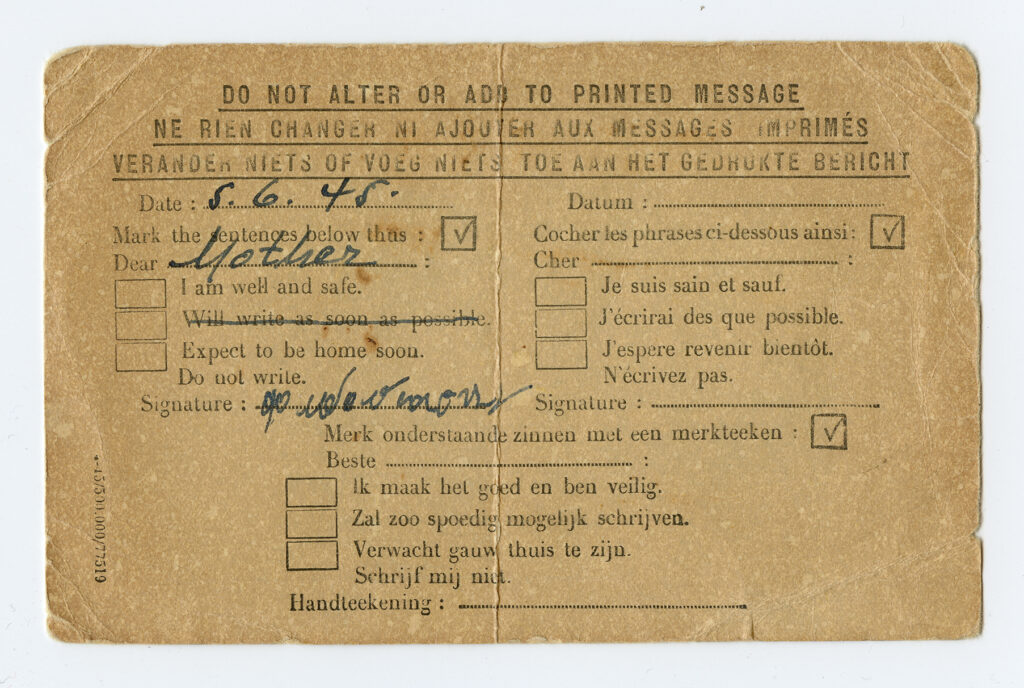 DO NOT ALTER OR ADD TO PRINTED MESSAGE
NE RIEN CHANGER NI AJOUTER AUX MESSAGES IMPRIMÉS
VERANDER NIETS OF VOEG NIETS TOE AAN HET GEDRUKTE BERICHT
Date : 5. 6. 45.
Mark the sentences below thus : √
Dear Mother :
I am well and safe.
Will write as soon as possible.
Expect to be home soon.
Do not write.
Signature :
Datum :
Cocher les phrases ci-dessous ainsi : √
Cher :
Je suis sain et sauf.
J'écrirai des que possible.
J'espere revenir bientôt.
N'écrivez pas.
Signature :
Merk onderstaande zinnen met een merkteeken : √
Beste :
Ik maak het goed en ben veilig.
Zal zoo spoedig mogelijk schrijven.
Verwacht gauw thuis te zijn.
Schrijf mij niet.
Handteekening :